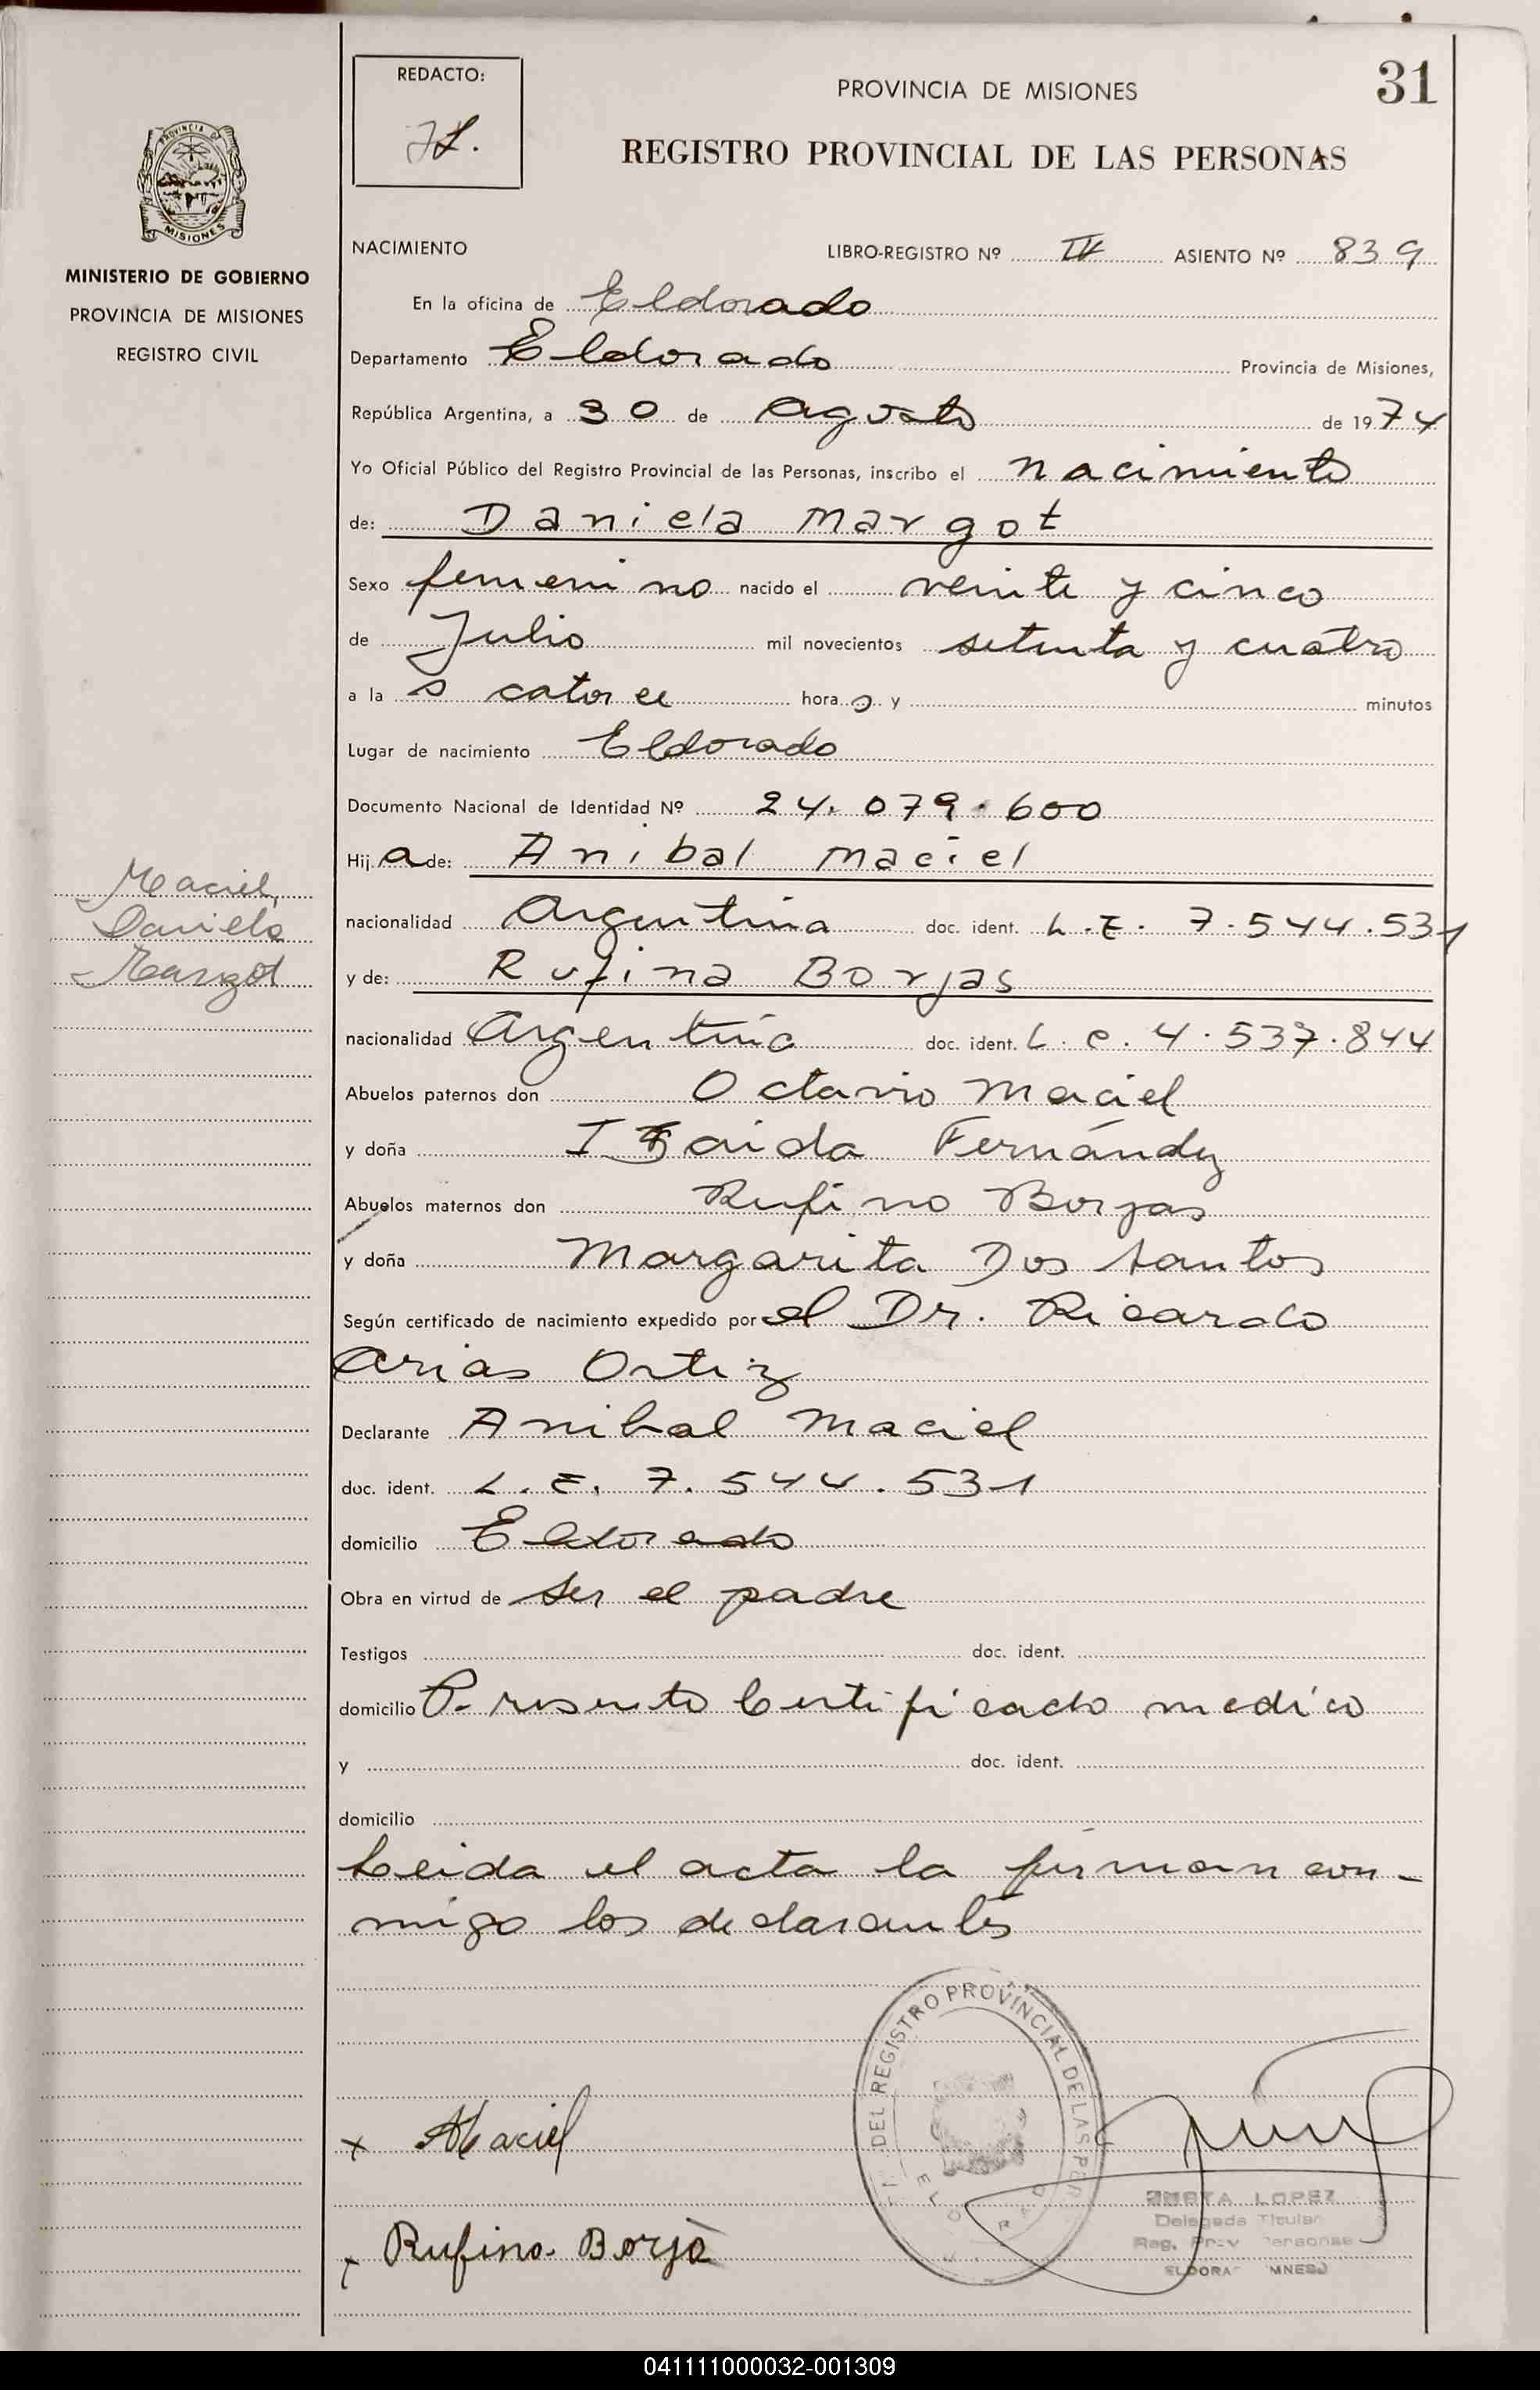 31
REDACTO:
JL.
PROVINCIA DE MISIONES
REGISTRO PROVINCIAL DE LAS PERSONAS
PROVINCIA DE
MISIONES
MINISTERIO DE GOBIERNO
PROVINCIA DE MISIONES
REGISTRO CIVIL
NACIMIENTO LIBRO-REGISTRO Nº IV ASIENTO Nº 839
En la oficina de Eldorado
Departamento Eldorado Provincia de Misiones,
República Argentina, a 30 de Agosto de 1974
Yo Oficial Público del Registro Provincial de las Personas, inscribo el nacimiento
de: Daniela Margot
Sexo femenino nacido el veinte y cinco
de Julio mil novecientos setenta y cuatro
a las catorce horas y minutos
Lugar de nacimiento Eldorado
Documento Nacional de Identidad Nº 24.079.600
Hija de: Anibal Maciel
Maciel,
Daniela
Margot
nacionalidad Argentina doc. ident. L.E. 7.544.531
y de: Rufina Borjas
nacionalidad Argentina doc. ident. L.C. 4.537.844
Abuelos paternos don Octavio Maciel
y doña Fernández
Abuelos maternos don Rufino Borjas
y doña Margarita Dos Santos
Según certificado de nacimiento expedido por el Dr. Ricardo
Arias Ortiz
Declarante Anibal Maciel
doc. ident. L.E. 7.544.531
domicilio Eldorado
Obra en virtud de ser el padre
Testigos doc. ident.
domicilio Presento Certificado medico
y doc. ident.
domicilio
Leida el acta la firman con-
migo los declarantes
DEL REGISTRO PROVINCIAL DE LAS PER
x AMaciel
LOPEZ
Delegada Titular
Reg. Prov Personas
x Rufina Borja
041111000032-001309